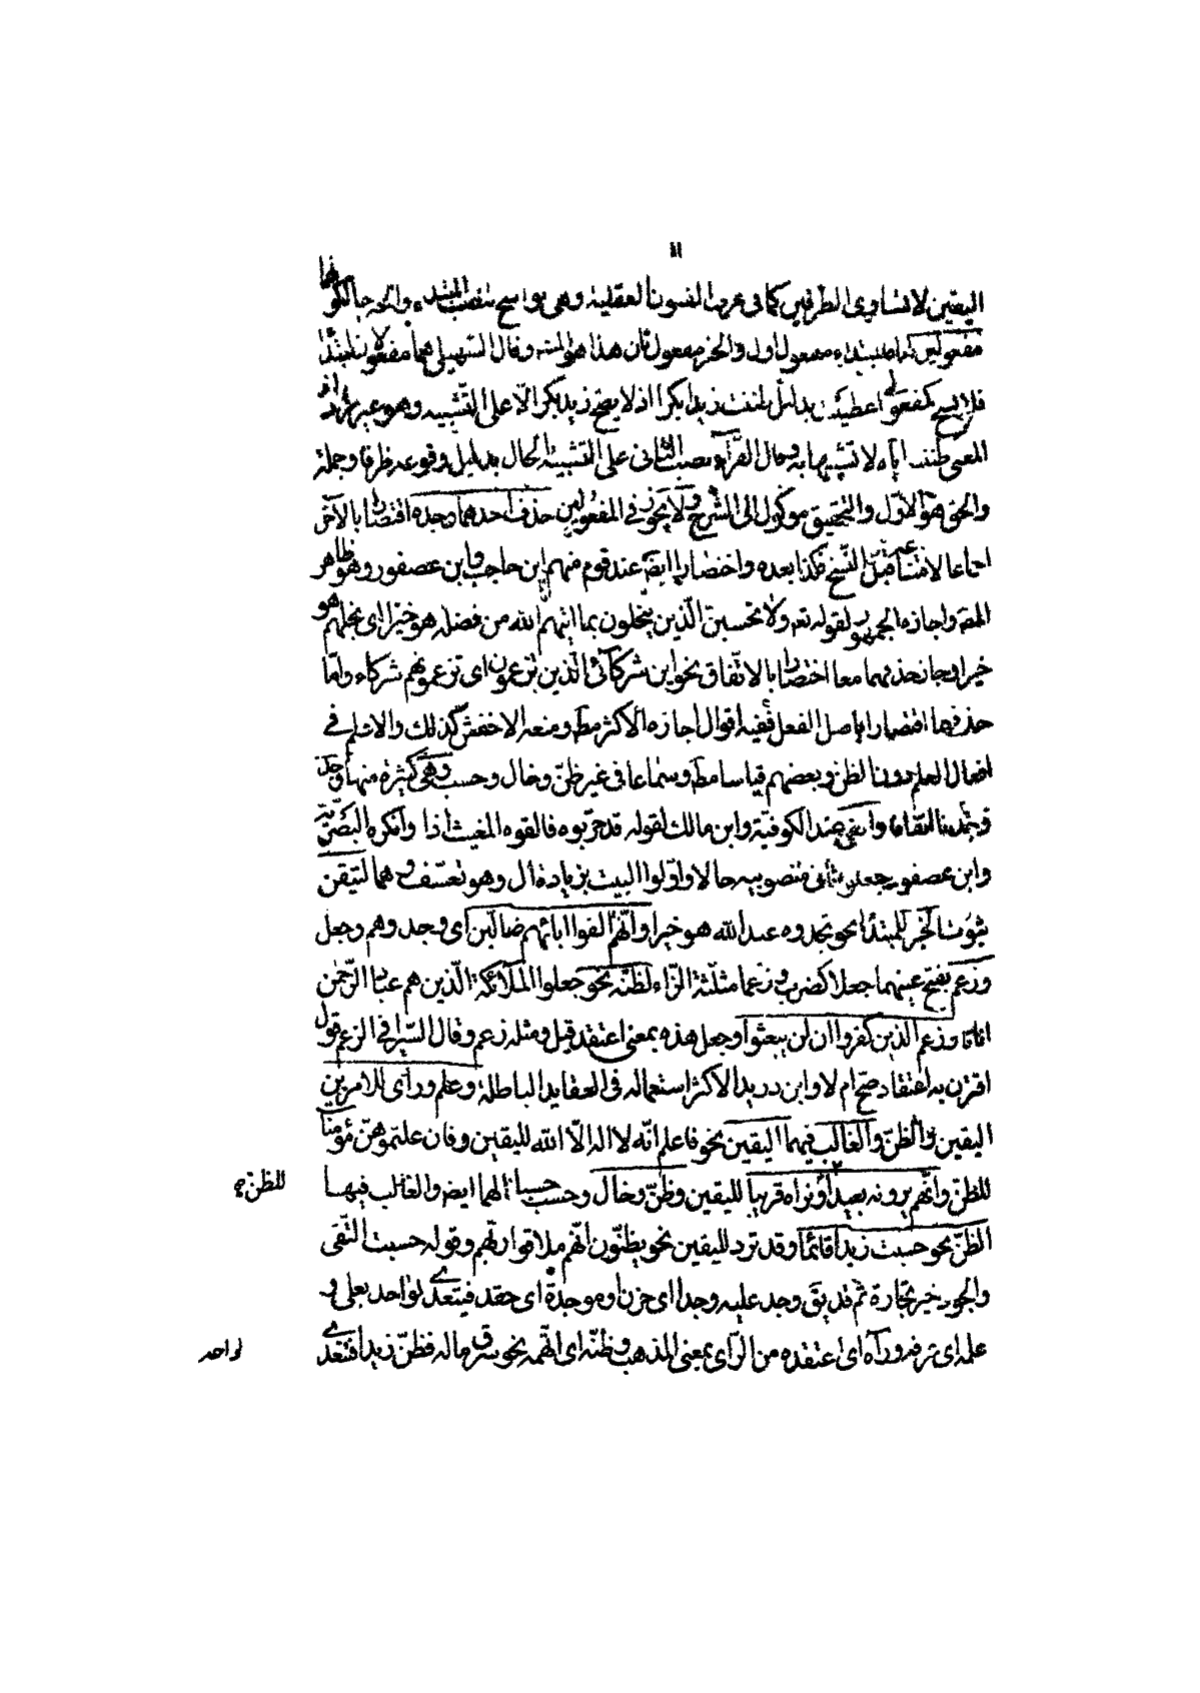 اليقين لا تساوى الطرفين كما فى عرف الفنون العقلية وهى نواسخ تنصب المبتدء والخبر حالكونهما
مفعولين لها فالمبتداء مفعول اول والخبر مفعول ثان هذا هو المشهور وقال السهيلى هما مفعولان ابتداء
كمفعولى اعطيت بدليل ظننت زيدا بكرا اذ لا يصح زيد بكر الا على التشبيه وهو غير مراد اذ
المعنى ظننت اياه لا تشبيهها به وقال الفراء نصب الثانى على التشبيه بالحال بدليل وقوعه ظرفا وجملة
والحق هو الاول والتحقيق موكول الى الشرح ولا يجوز فى المفعولين حذف احدهما وحده اقتصارا بالآخر
اجماعا لامتناعه قبل النسخ فكذا بعده واختصارا ايضه عند قوم منهم ابن حاجب وابن عصفور وهو ظاهر
المصه واجازه الجمهور لقوله تعه ولا تحسبن الذين يبخلون بما اتيهم الله من فضله هو خيرا اى بخلهم هو
خيرا وجاز حذفهما معا اختصارا بالاتفاق نحو اين شركائى الذين تزعمون اى تزعمونهم شركاء واما
حذفهما اقتصارا باصل الفعل ففيه اقوال اجازه الاكثر مطه ومنعه الاخفش كذلك والاعلم فى
افعال العلم دون الظن وبعضهم قياسا مطه وسماعا فى غير ظن وخال وحسب وهى كثيرة منها وجد
والفى عند الكوفية وابن مالك لقوله قد جربوه فالفوه المغيث اذا وانكره البصرية
وابن عصفور بجعل ثانى منصوبيه حالا واولوا البيت بزيادة ال وهو تعسف وهما لتيقن
ثبوت الخبر للمبتدا نحو تجدوه عند الله هو خيرا وانهم الفوا ابائهم ضالين اى وجدوهم وجعل
وزعم بفتح عينهما جعلا كضرب وزعما مثلثة الزاء لظنه نحو جعلوا الملائكة الذين هم عباد الرحمن
اناثا وزعم الذين كفروا ان لن يبعثوا وجعل هذه بمعنى اعتقد قيل ومثله زعم وقال السيرافى الزعم قول
اقترن به اعتقاد صح ام لا وابن دريد الاكثر استعماله فى العقايد الباطلة وعلم وراى للامرين
اليقين والظن والغالب فيهما اليقين نحو فاعلم انه لا اله الا الله لليقين وفان علمتموهن مؤمنات
للظن وانهم يرونه بعيدا ونراه قريبا لليقين وظن وخال وحسب حسبا لهما ايضه والغالب فيها
الظن نحو حسبت زيدا قائما وقد ترد لليقين نحو يظنون انهم ملاقوا ربهم وقوله حسبت التقى
والجود خير تجارة ثم قد يق وجد عليه وجدا اى حزن او موجدة اى حقد فيتعدى لواحد بعلى و
علمه اى عرفه ورآه اى اعتقده من الراى بمعنى المذهب وظنه اى اتهمه نحو سرق ماله فظن زيدا فتعدى
للظن
لواحد